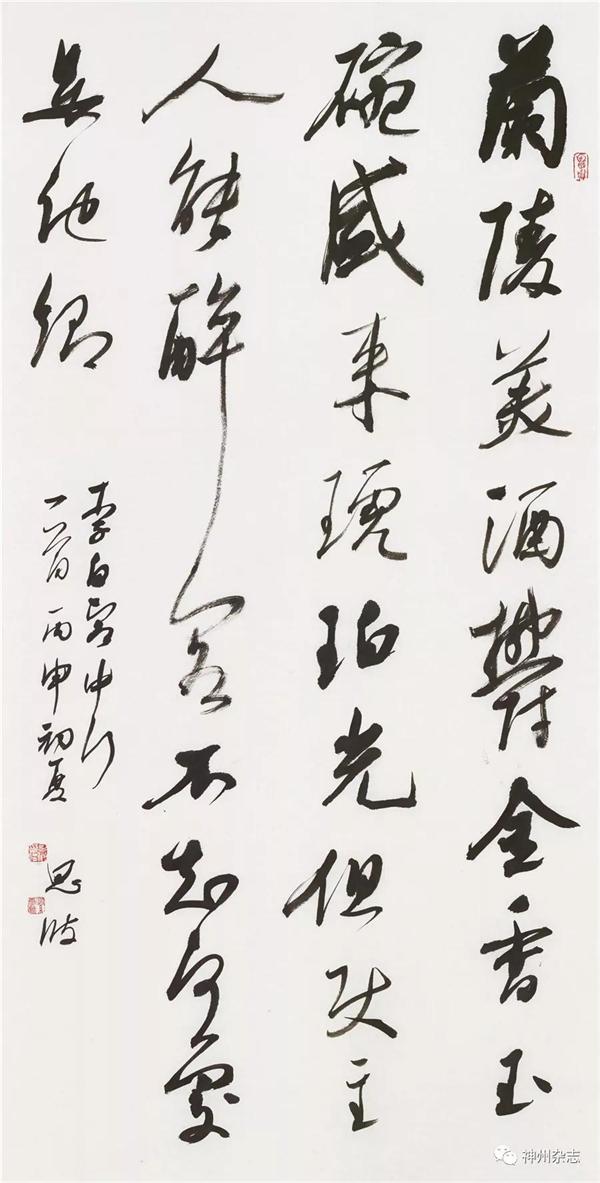 蘭陵美酒鬱金香玉
碗盛来琥珀光但使主
人能醉客不知何處
是他鄉
李白客中行
一首丙申初夏
思
神州杂志